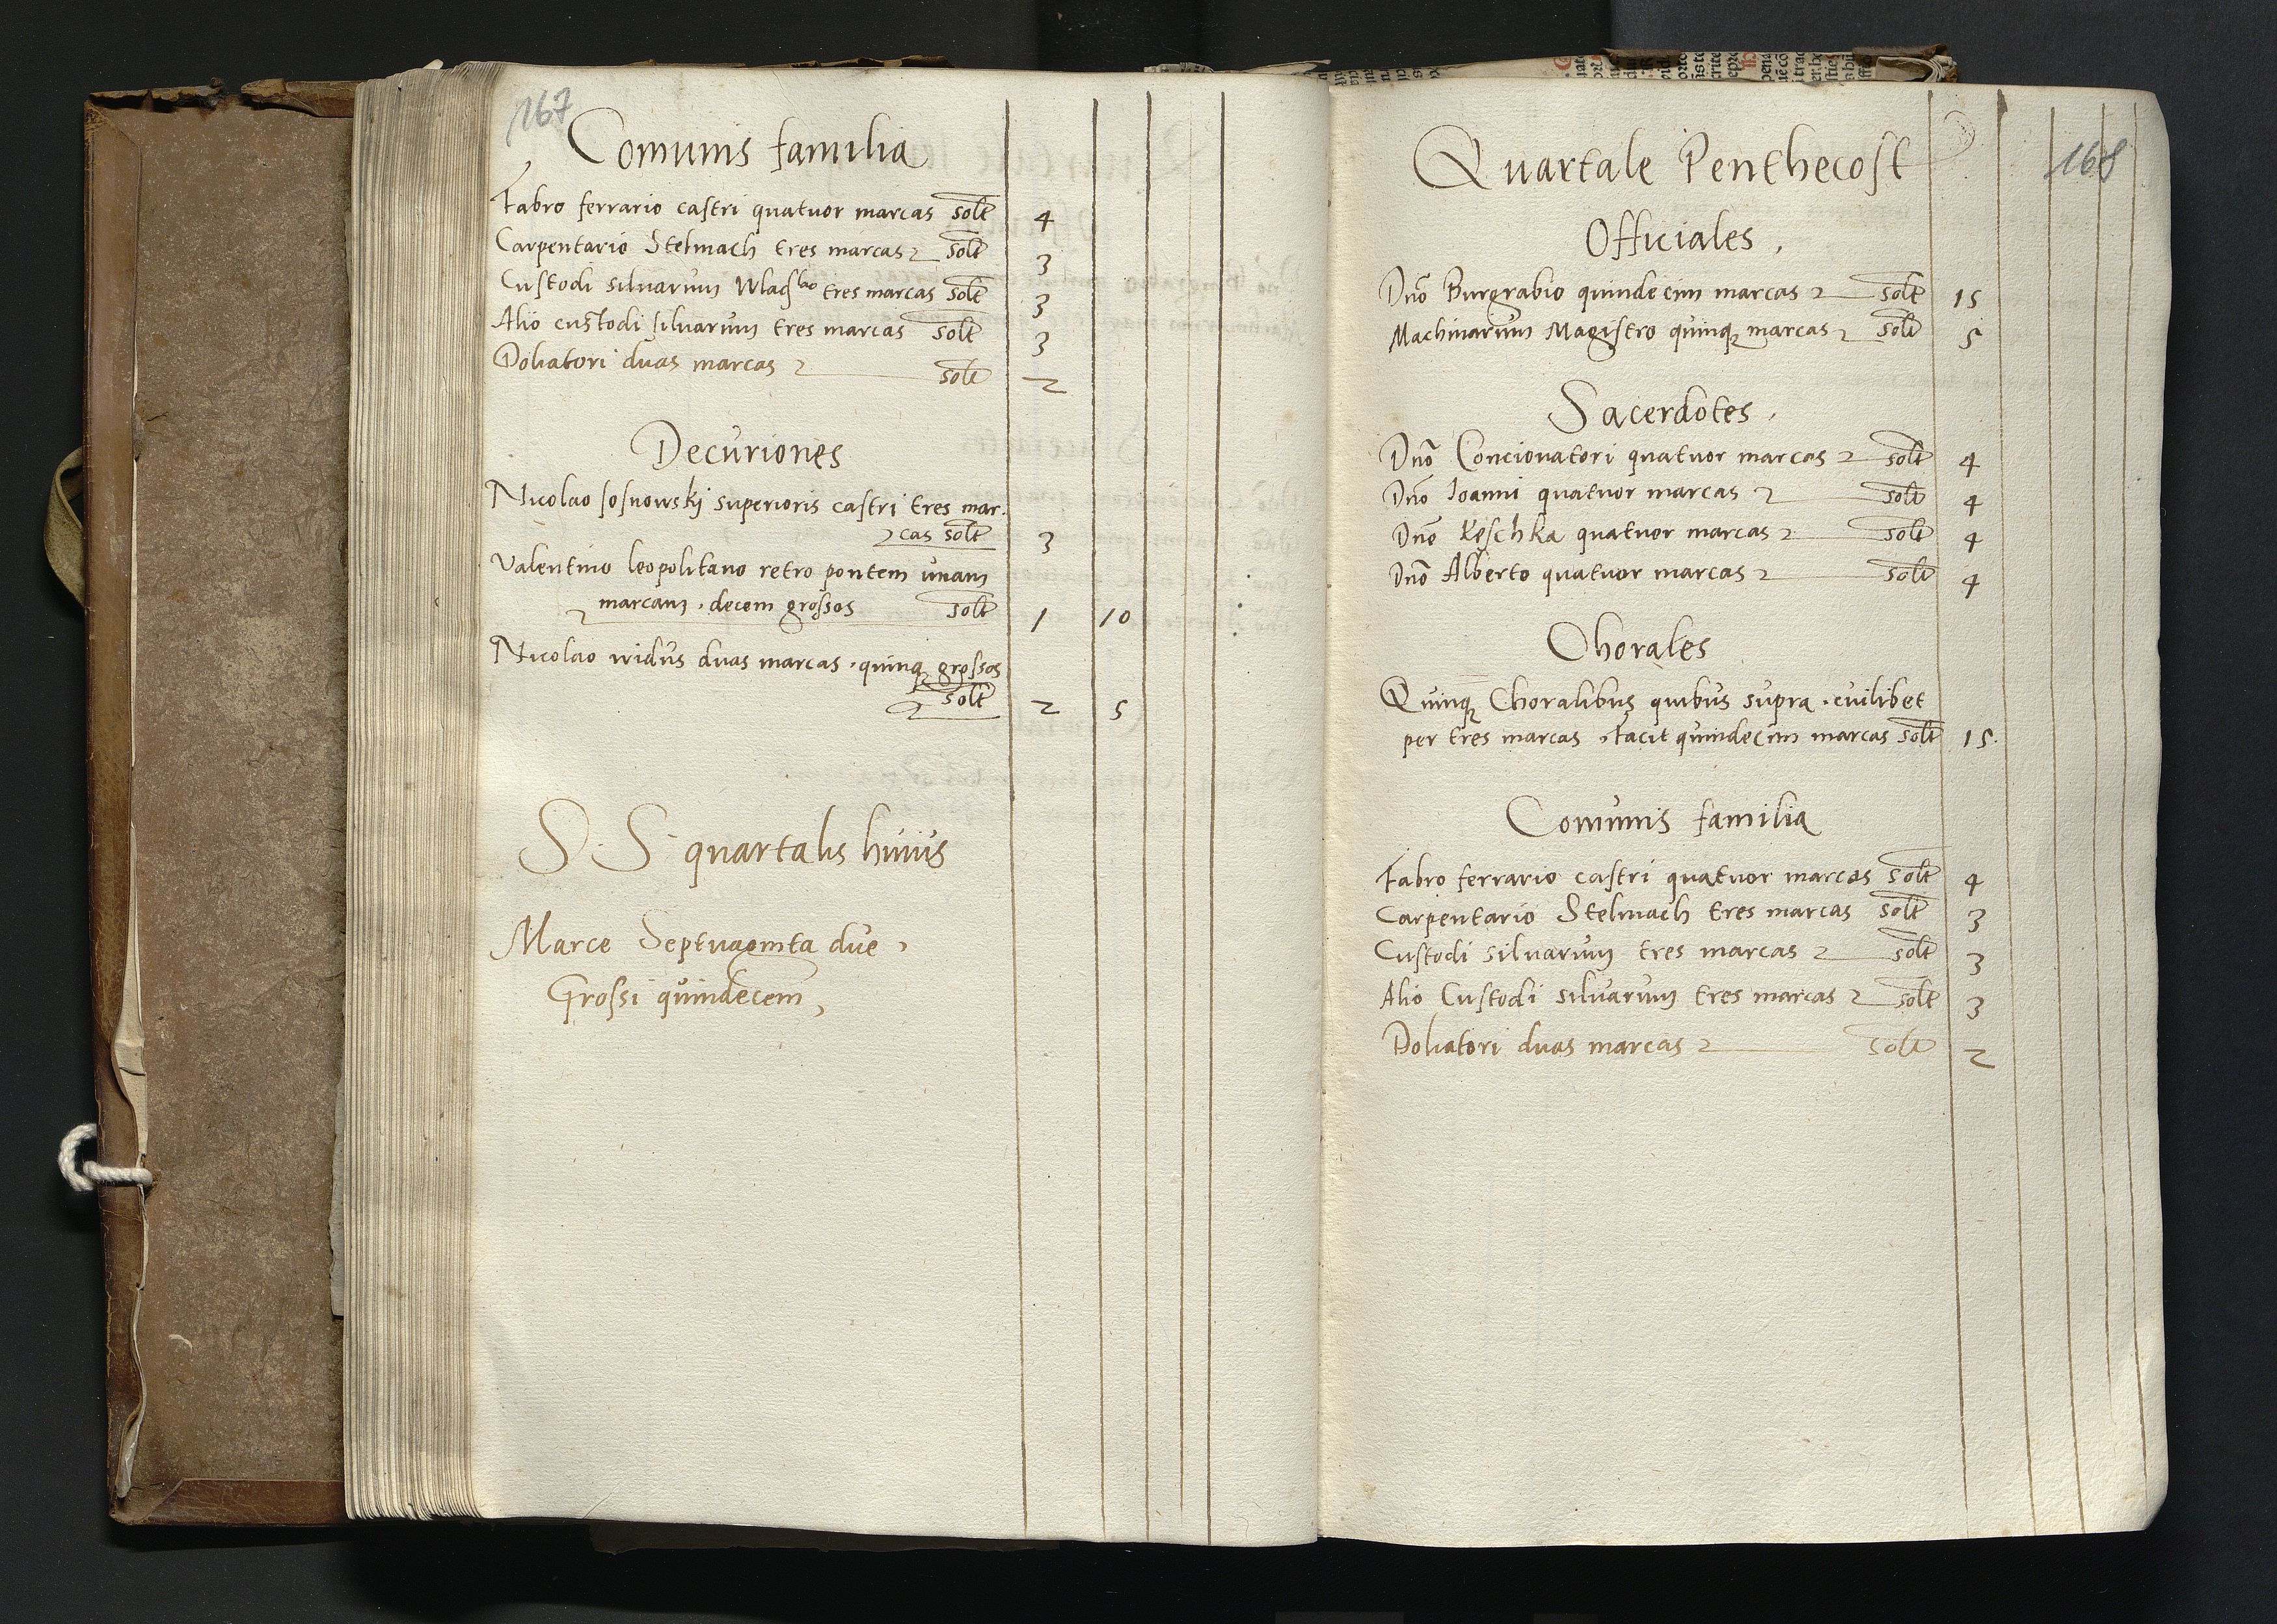 167
Comunis familia
Fabro ferrario castri quatuor marcas solt 4
Carpentario Stelmach tres marcas solt 3
Custodi siluarum Wladslao tres marcas solt 3
Alio custodi siluarum tres marcas solt 3
Doliatori duas marcas solt 2
Decuriones
Nicolao sosnowskij superioris castri tres mar.
cas solt 3
Valentino leopolitano retro pontem unam
marcam, decem grossos solt 1 10
Nicolao vidus duas marcas, quinq grossos
solt 2 5
S. S. quartalis huius
Marce Septuaginta due,
Grossi quindecem,
168
Quartale Penthecost
Officiales,
Dno Burgrabio quindecim marcas solt 15
Machinarum Magistro quinq marcas solt 5
Sacerdotes,
Dno Concionatori quatuor marcas solt 4
Dno Ioanni quatuor marcas solt 4
Dno Keschka quatuor marcas solt 4
Dno Alberto quatuor marcas solt 4
Chorales
Quinq Choralibus quibus supra, cuilibet
per tres marcas, facit quindecim marcas solt 15.
Comunis familia
Fabro ferrario castri quatuor marcas solt 4
Carpentario Stelmach tres marcas solt 3
Custodi siluarum tres marcas solt 3
Alio Custodi siluarum tres marcas solt 3
Doliatori duas marcas solt 2